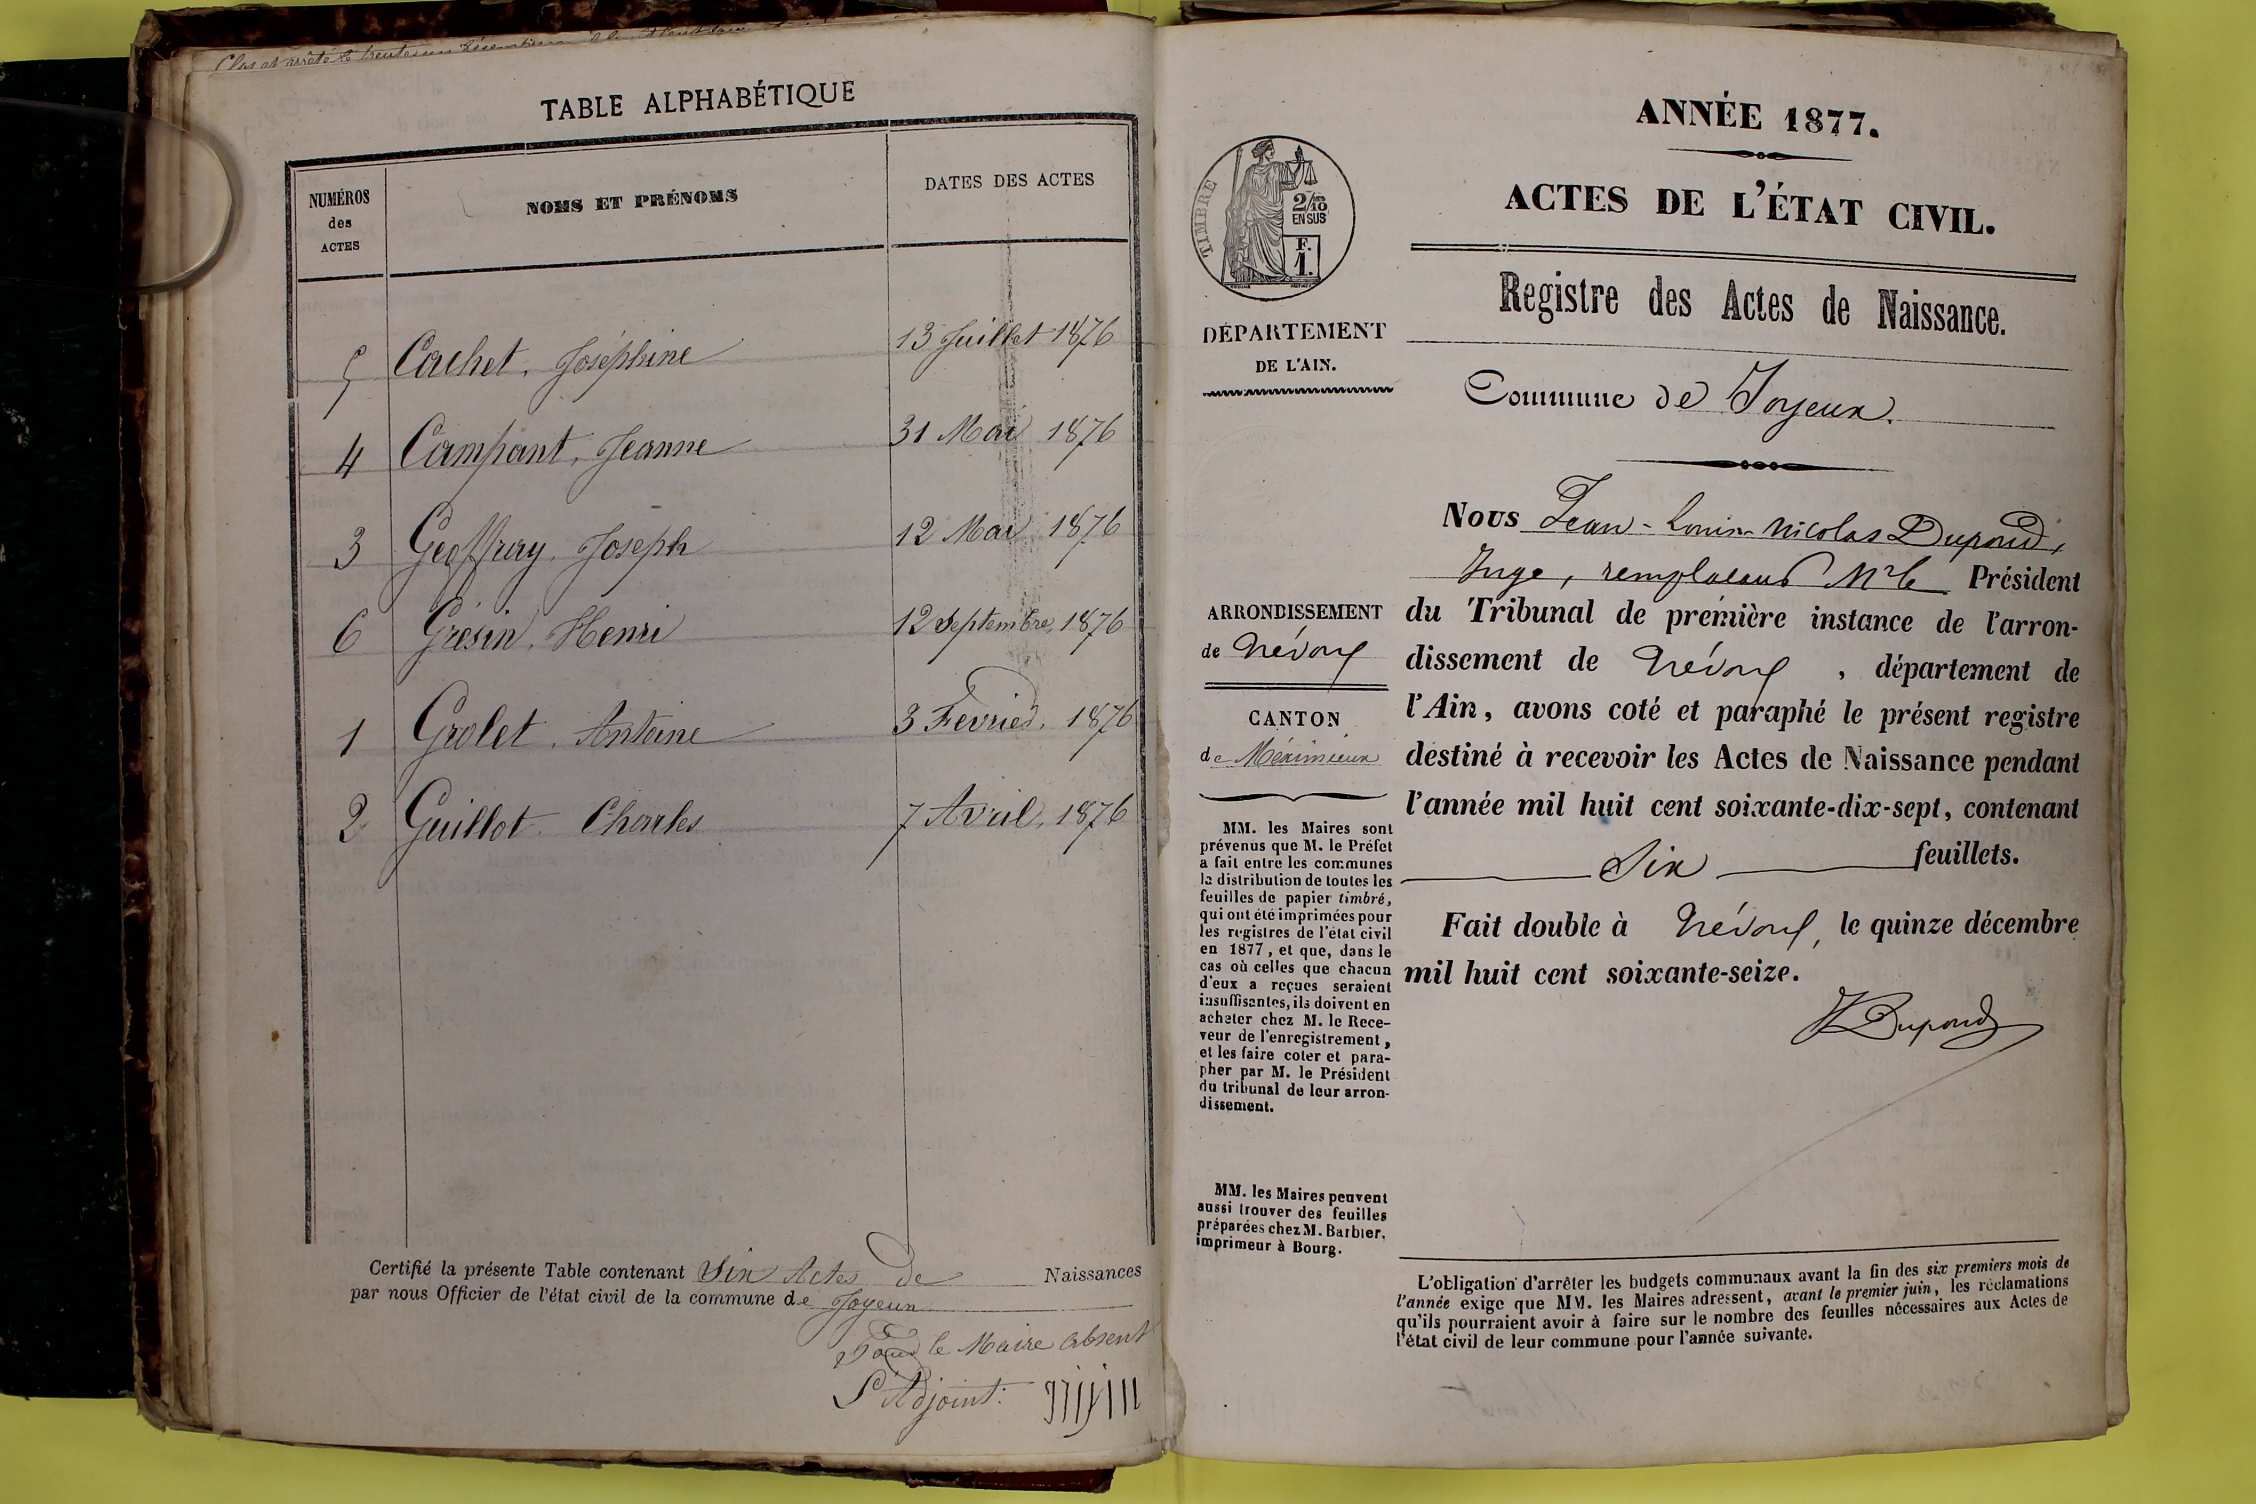 Clos et arrêté le trente un décembre
TABLE ALPHABÉTIQUE
NUMÉROS
des
ACTES
NOMS ET PRÉNOMS
DATES DES ACTES
5 Cachet, Joséphine 13 Juillet 1876
4 Campant, Jeanne 31 Mai 1876
3 Geoffray, Joseph 12 Mai 1876
6 Grésin, Henri 12 Septembre, 1876
1 Grolet, Antoine 3 Fevrier, 1876
2 Guillot Charles 7 Avril, 1876
Certifié la présente Table contenant Six Actes de Naissances
par nous Officier de l'état civil de la commune de Joyeux
Pour le Maire absent
L'Adjoint:
ANNÉE 1877.
ACTES DE L'ÉTAT CIVIL.
TIMBRE
2/10
EN SUS
F.
1.
Registre des Actes de Naissance.
DÉPARTEMENT
DE L'AIN.
Commune de Joyeux.
Nous Jean-Louis-Nicolas Dupond,
Juge, remplaçant Mr le Président
du Tribunal de première instance de l'arron-
dissement de Trévoux, département de
l'Ain, avons coté et paraphé le présent registre
destiné à recevoir les Actes de Naissance pendant
l'année mil huit cent soixante-dix-sept, contenant
Six feuillets.
Fait double à Trévoux, le quinze décembre
mil huit cent soixante-seize.
Dupond
ARRONDISSEMENT
de Trévoux
CANTON
de Méximieux
MM. les Maires sont
prévenus que M. le Préfet
a fait entre les communes
la distribution de toutes les
feuilles de papier timbré,
qui ont été imprimées pour
les registres de l'état civil
en 1877, et que, dans le
cas où celles que chacun
d'eux a reçues seraient
insuffisantes, ils doivent en
acheter chez M. le Rece-
veur de l'enregistrement,
et les faire coter et para-
pher par M. le Président
du tribunal de leur arron-
dissement.
MM. les Maires peuvent
aussi trouver des feuilles
préparées chez M. Barbier,
imprimeur à Bourg.
L'obligation d'arrêter les budgets communaux avant la fin des six premiers mois de
l'année exige que MM. les Maires adressent, avant le premier juin, les réclamations
qu'ils pourraient avoir à faire sur le nombre des feuilles nécessaires aux Actes de
l'état civil de leur commune pour l'année suivante.